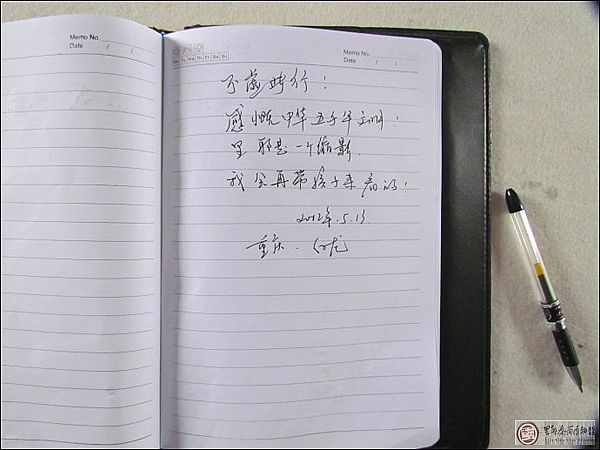 Memo No.
Date / /
Memo No.
Date / /
Mo Tu We Th Fr Sa Su
不虚此行！
感慨中华五千年文明！
里耶是一个缩影.
我会再带孩子来看的！
2012年.5.13.
重庆.
里耶秦简博物馆